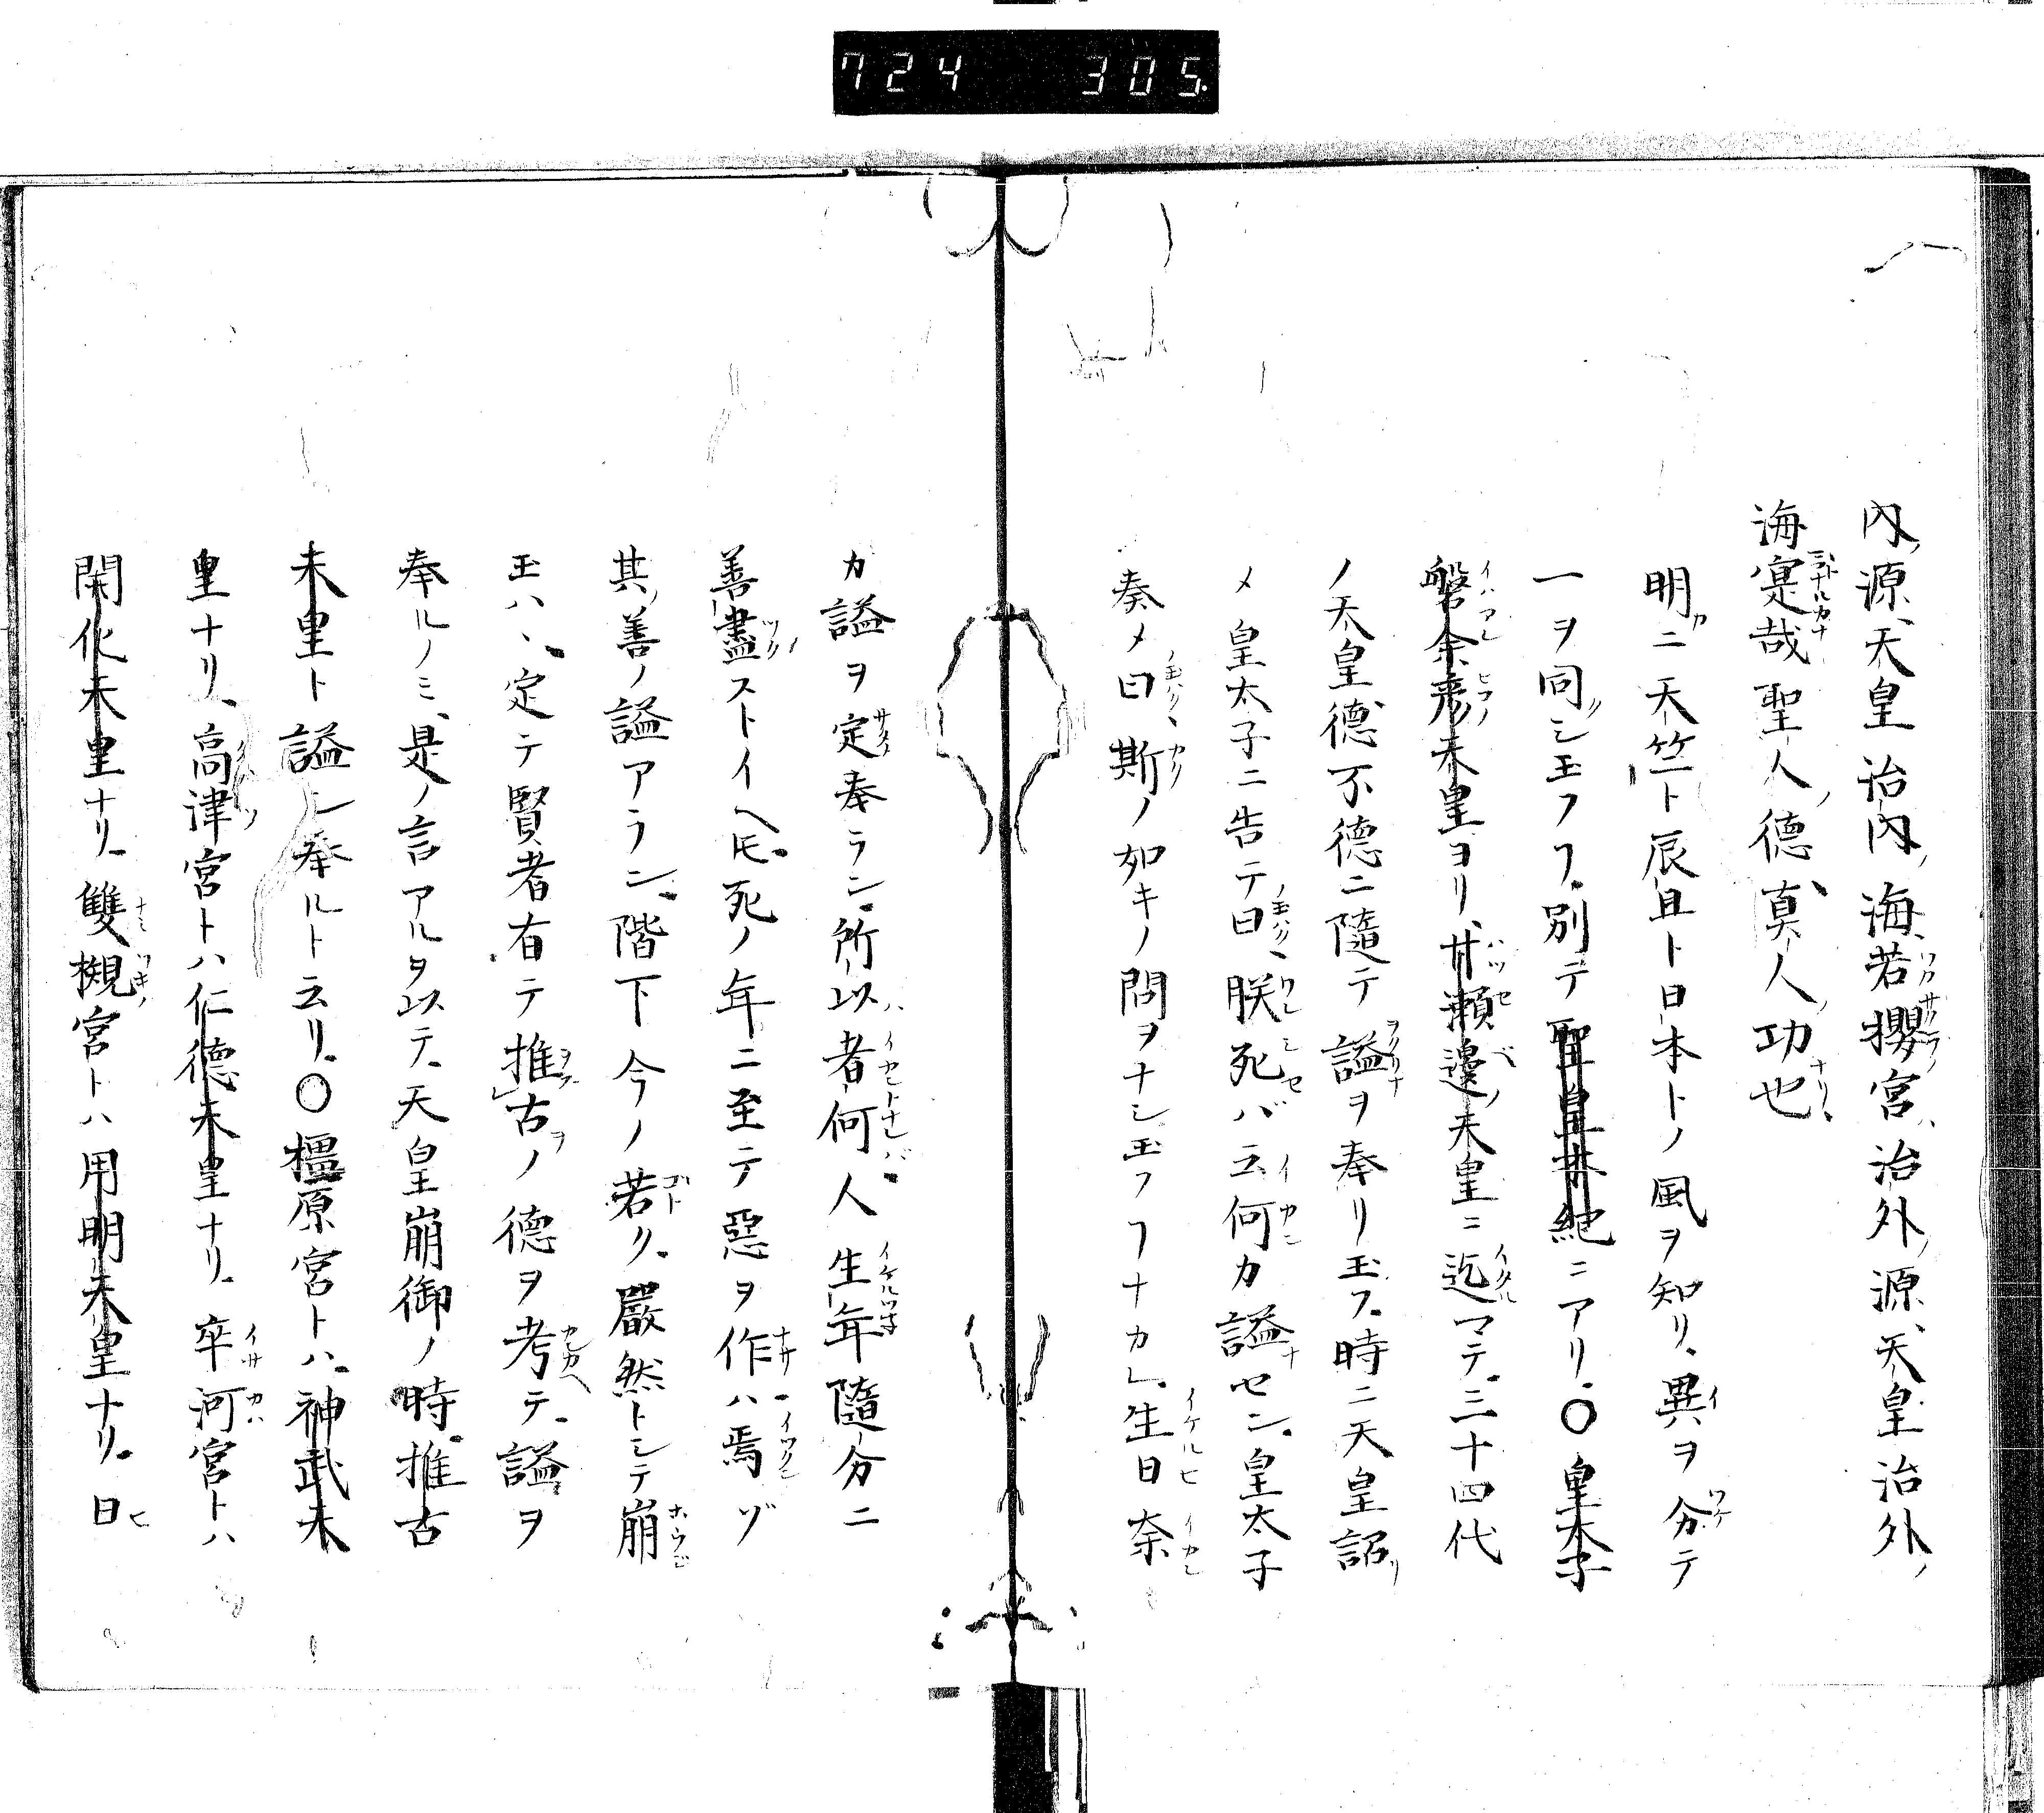 724 305
内ノ源、天皇治内ノ海、若櫻宮ハ治外ノ源、天皇治外ノ
海、寔哉聖人ノ徳、真人ノ功也
明カニ天竺ト辰旦ト日本トノ風ヲ知リ、異ヲ分テ
一ヲ同シ玉フヿ、別テ聖皇本紀ニアリ。〇皇太子
磐余彦天皇ヨリ、廿瀬邊天皇ニ迄マテ、三十四代
ノ天皇、徳不徳ニ隨テ謚ヲ奉リ玉フ。時ニ天皇詔
メ皇太子ニ告テ曰、朕死バ云何カ謚セン。皇太子
奏メ曰、斯ノ如キノ問ヲナシ玉フヿナカレ。生日奈
カ謚ヲ定奉ラン。所以者何人生年隨分ニ
善盡ストイヘ𪜈。死ノ年ニ至テ惡ヲ作ハ焉ヅ
其ノ善ノ謚アラン。階下今ノ若ク。嚴然トシテ崩
玉ハヽ、定テ賢者有テ推古ノ徳ヲ考テ。謚ヲ
奉ルノミ、是ノ言アルヲ以テ、天皇崩御ノ時。推古
天皇ト謚シ奉ルト云リ。〇橿原宮トハ。神武天
皇ナリ。高津宮トハ仁徳天皇ナリ。卒河宮トハ
開化天皇ナリ。雙槻宮トハ用明天皇ナリ。日